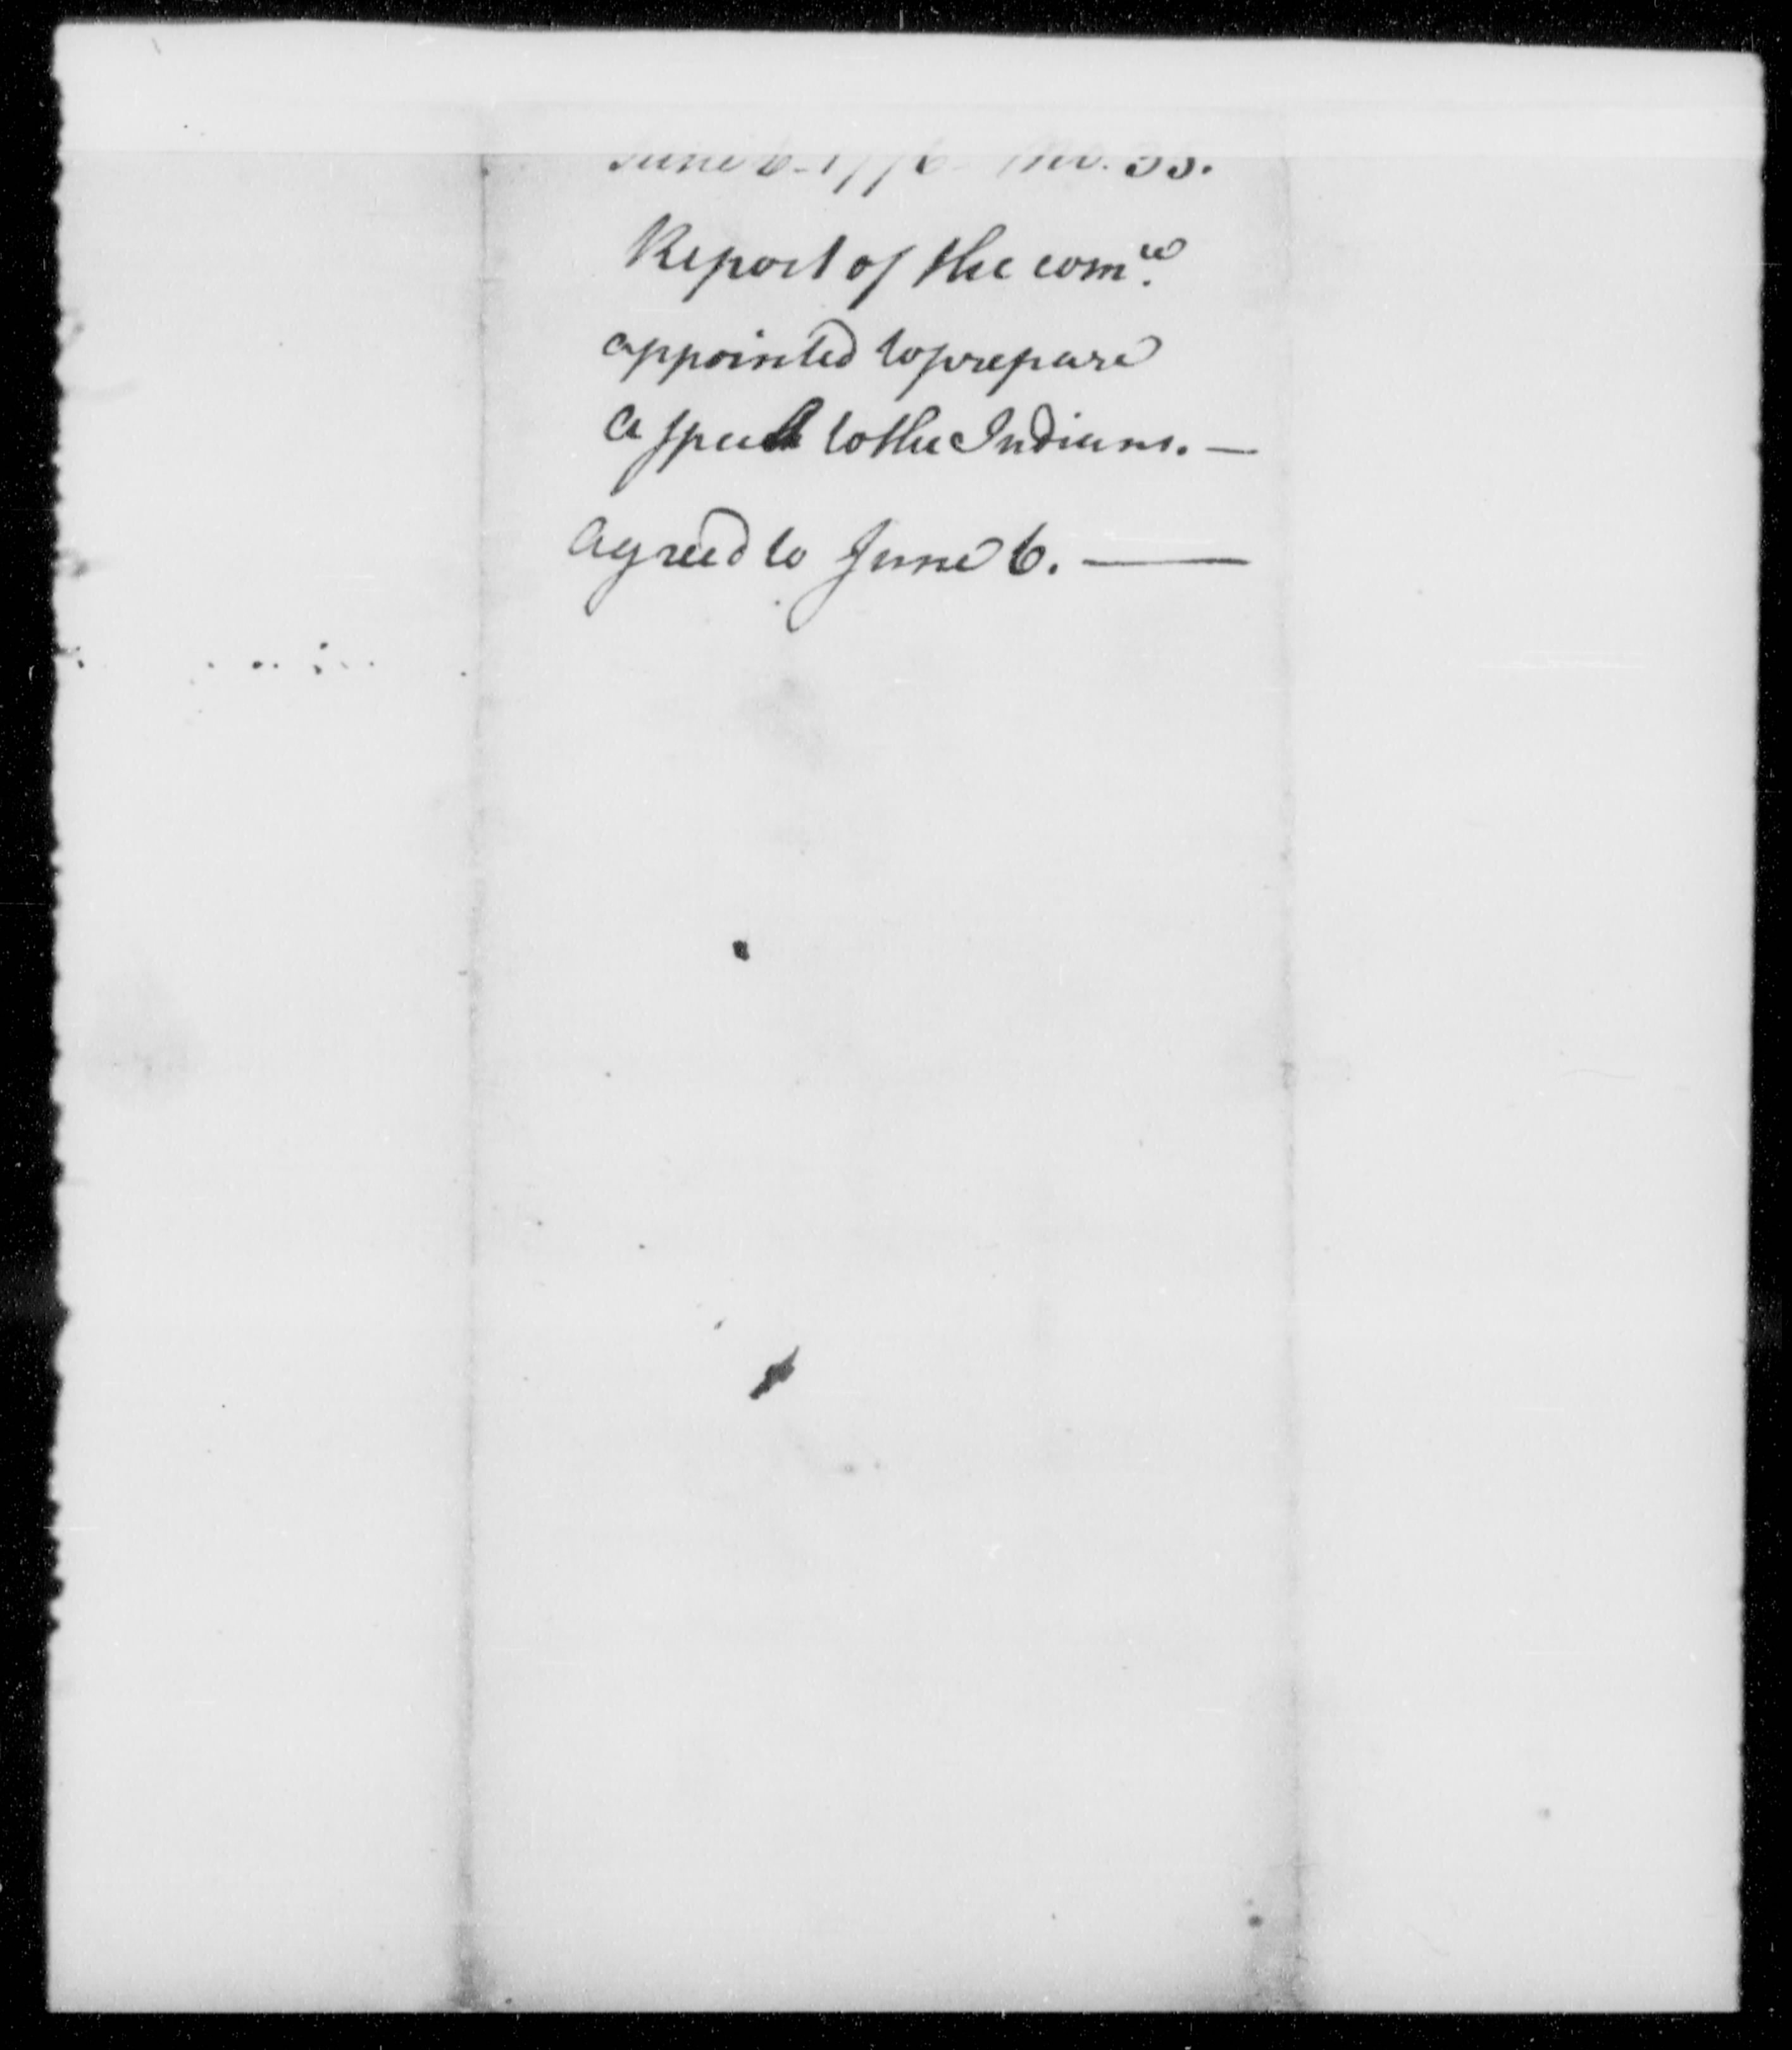 June 6-1776- No. 35.
Report of the com.ee
appointed to prepare
a speech to the Indians. —
agreed to June 6. —